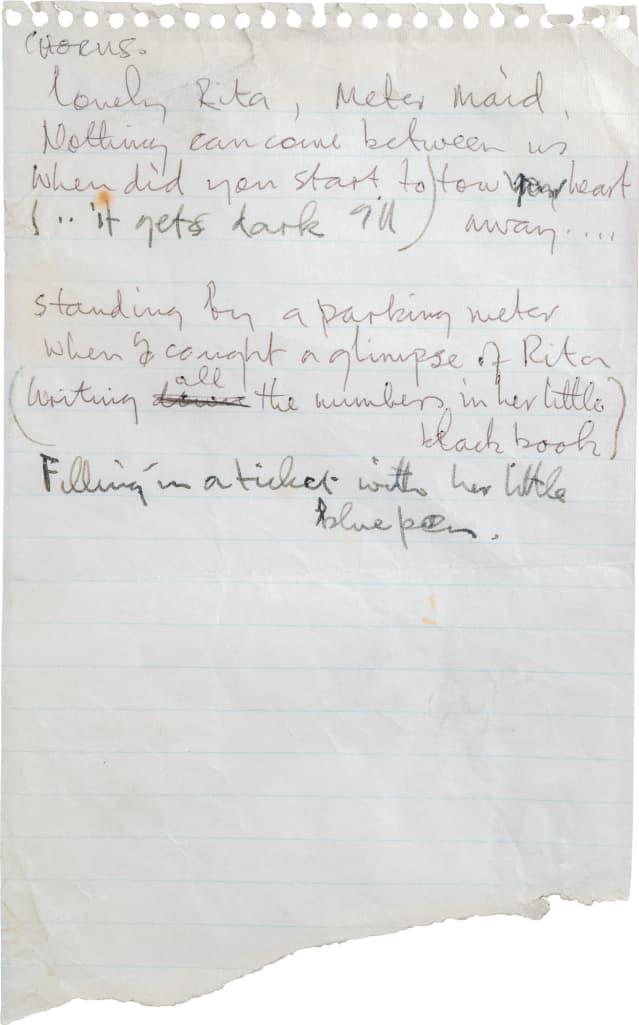 CHORUS.
Lovely Rita, Meter Maid,
Nothing can come between us
When did you start to) tow your heart
( .. it gets dark I'll ) away....
standing by a parking meter
when I caught a glimpse of Rita
all
(Writing down the numbers in her little
black book)
Filling in a ticket with her little
blue pen.